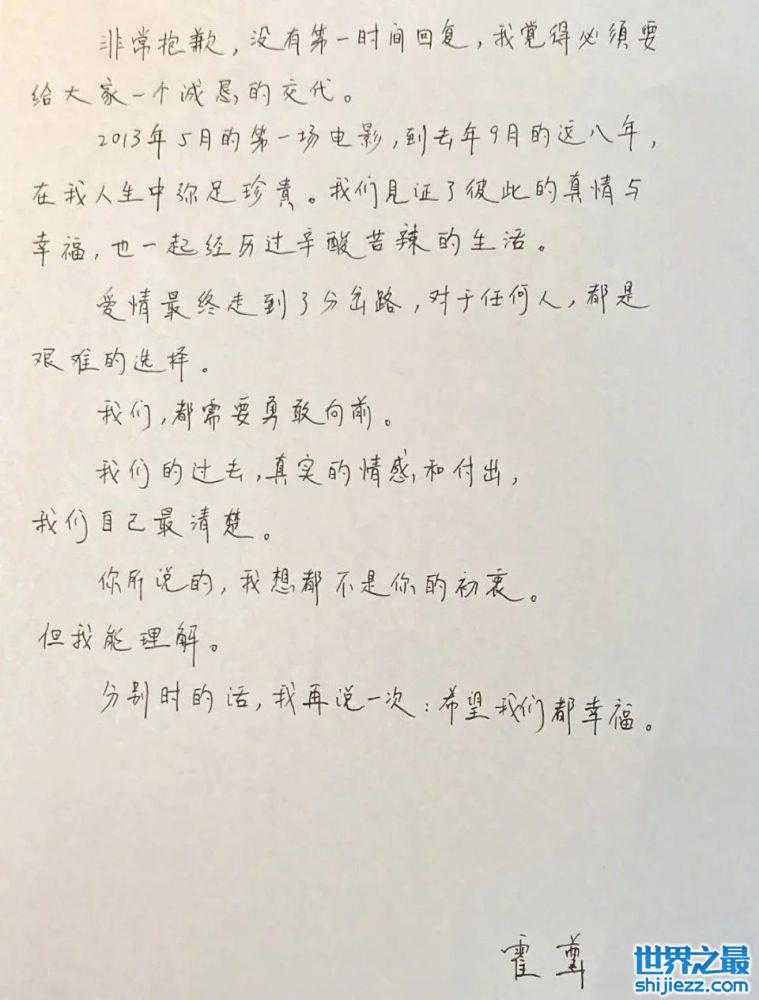 非常抱歉，没有第一时间回复，我觉得必须要
给大家一个诚恳的交代。
2013年5月的第一场电影，到去年9月的这八年，
在我人生中弥足珍贵。我们见证了彼此的真情与
幸福，也一起经历过辛酸苦辣的生活。
爱情最终走到了分岔路，对于任何人，都是
艰难的选择。
我们，都需要勇敢向前。
我们的过去，真实的情感和付出，
我们自己最清楚。
你所说的，我想都不是你的初衷。
但我能理解。
分别时的话，我再说一次：希望我们都幸福。
霍尊
世界之最
shijiezz.com